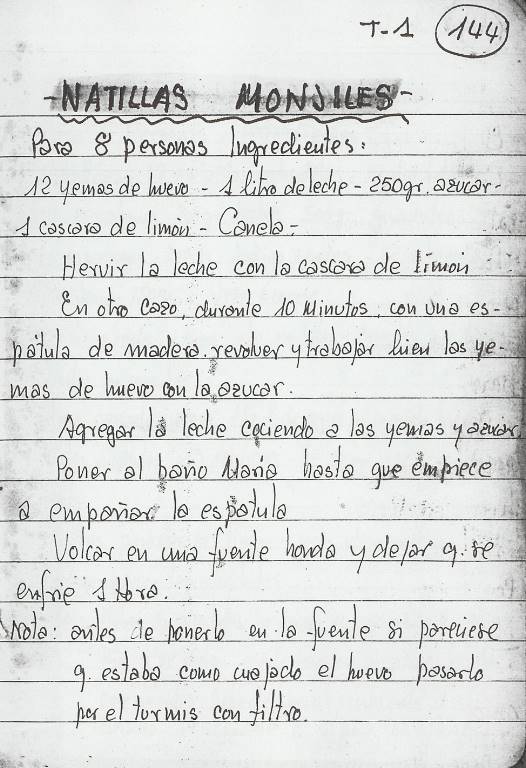 T-1 144
-NATILLAS MONJILES-
Para 8 personas Ingredientes:
12 yemas de huevo - 1 litro de leche - 250gr. azucar-
1 cascara de limón - Canela-
Hervir la leche con la cascara de limón
En otro cazo, durante 10 Minutos, con una es-
pátula de madera. revolver y trabajar bien las ye-
mas de huevo con la azucar.
Agregar la leche cociendo a las yemas y azucar.
Poner al baño Maria hasta que empiece
a empañar la espatula
Volcar en una fuente honda y dejar q. se
enfrie 1 Hora.
Nota: antes de ponerlo en la fuente si pareciese
q. estaba como cuajado el huevo pasarlo
por el turmis con filtro.